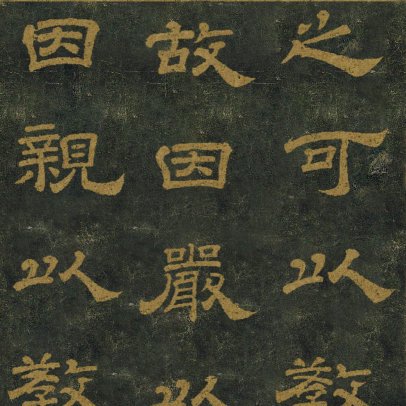 之可以教
故因嚴以
因親以教